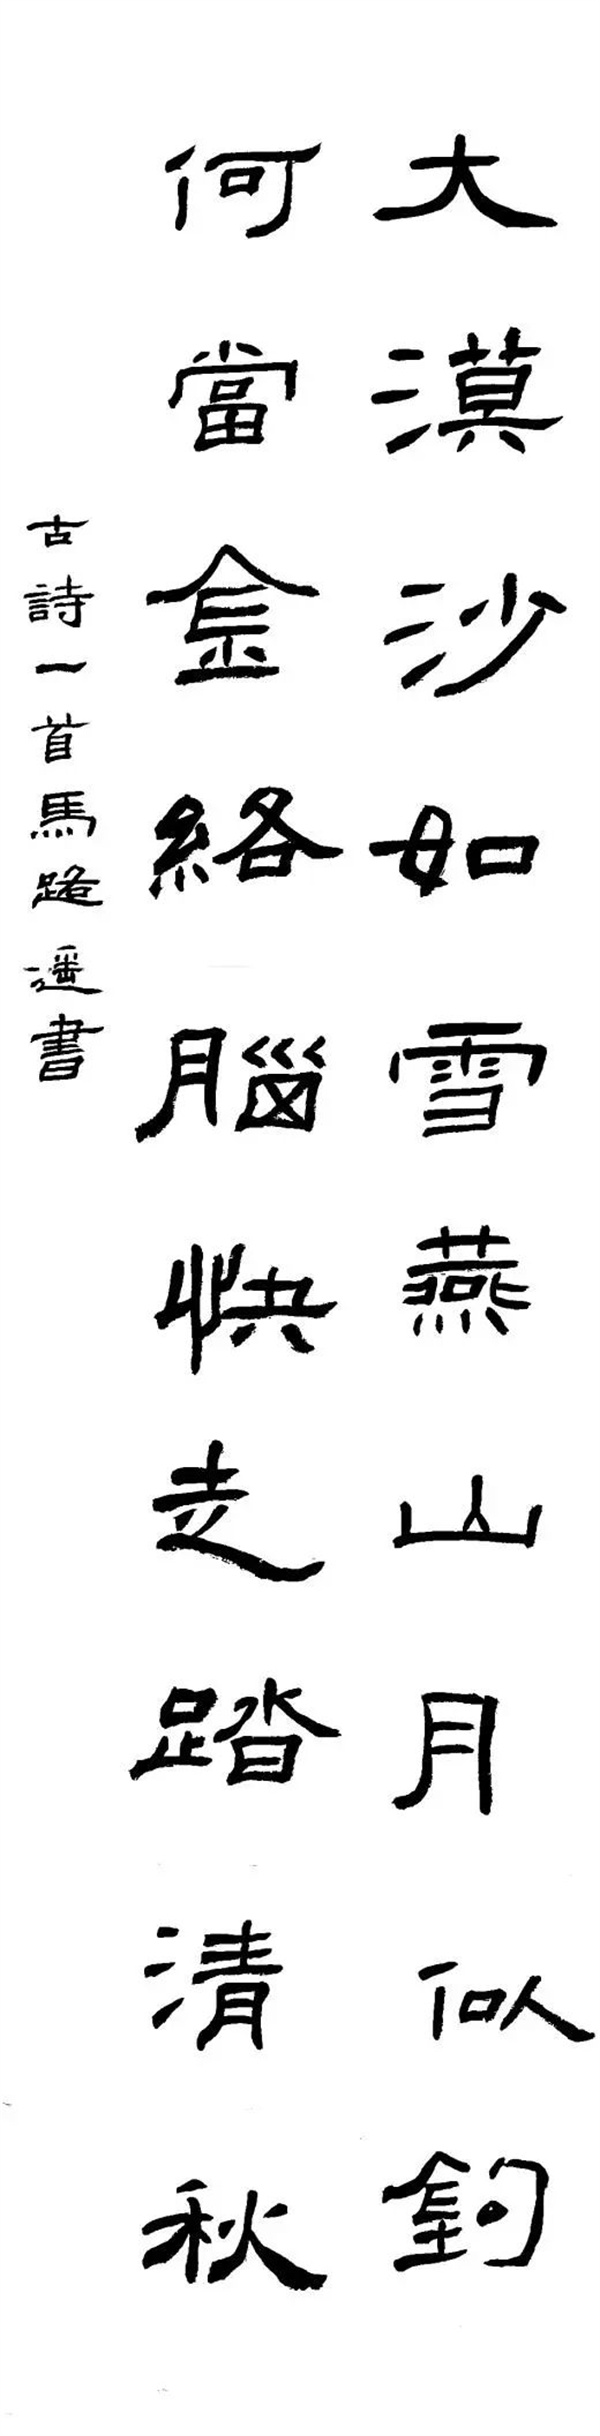 大漠沙如雪燕山月似鈎
何當金絡腦快走踏清秋
古詩一首馬路遥書